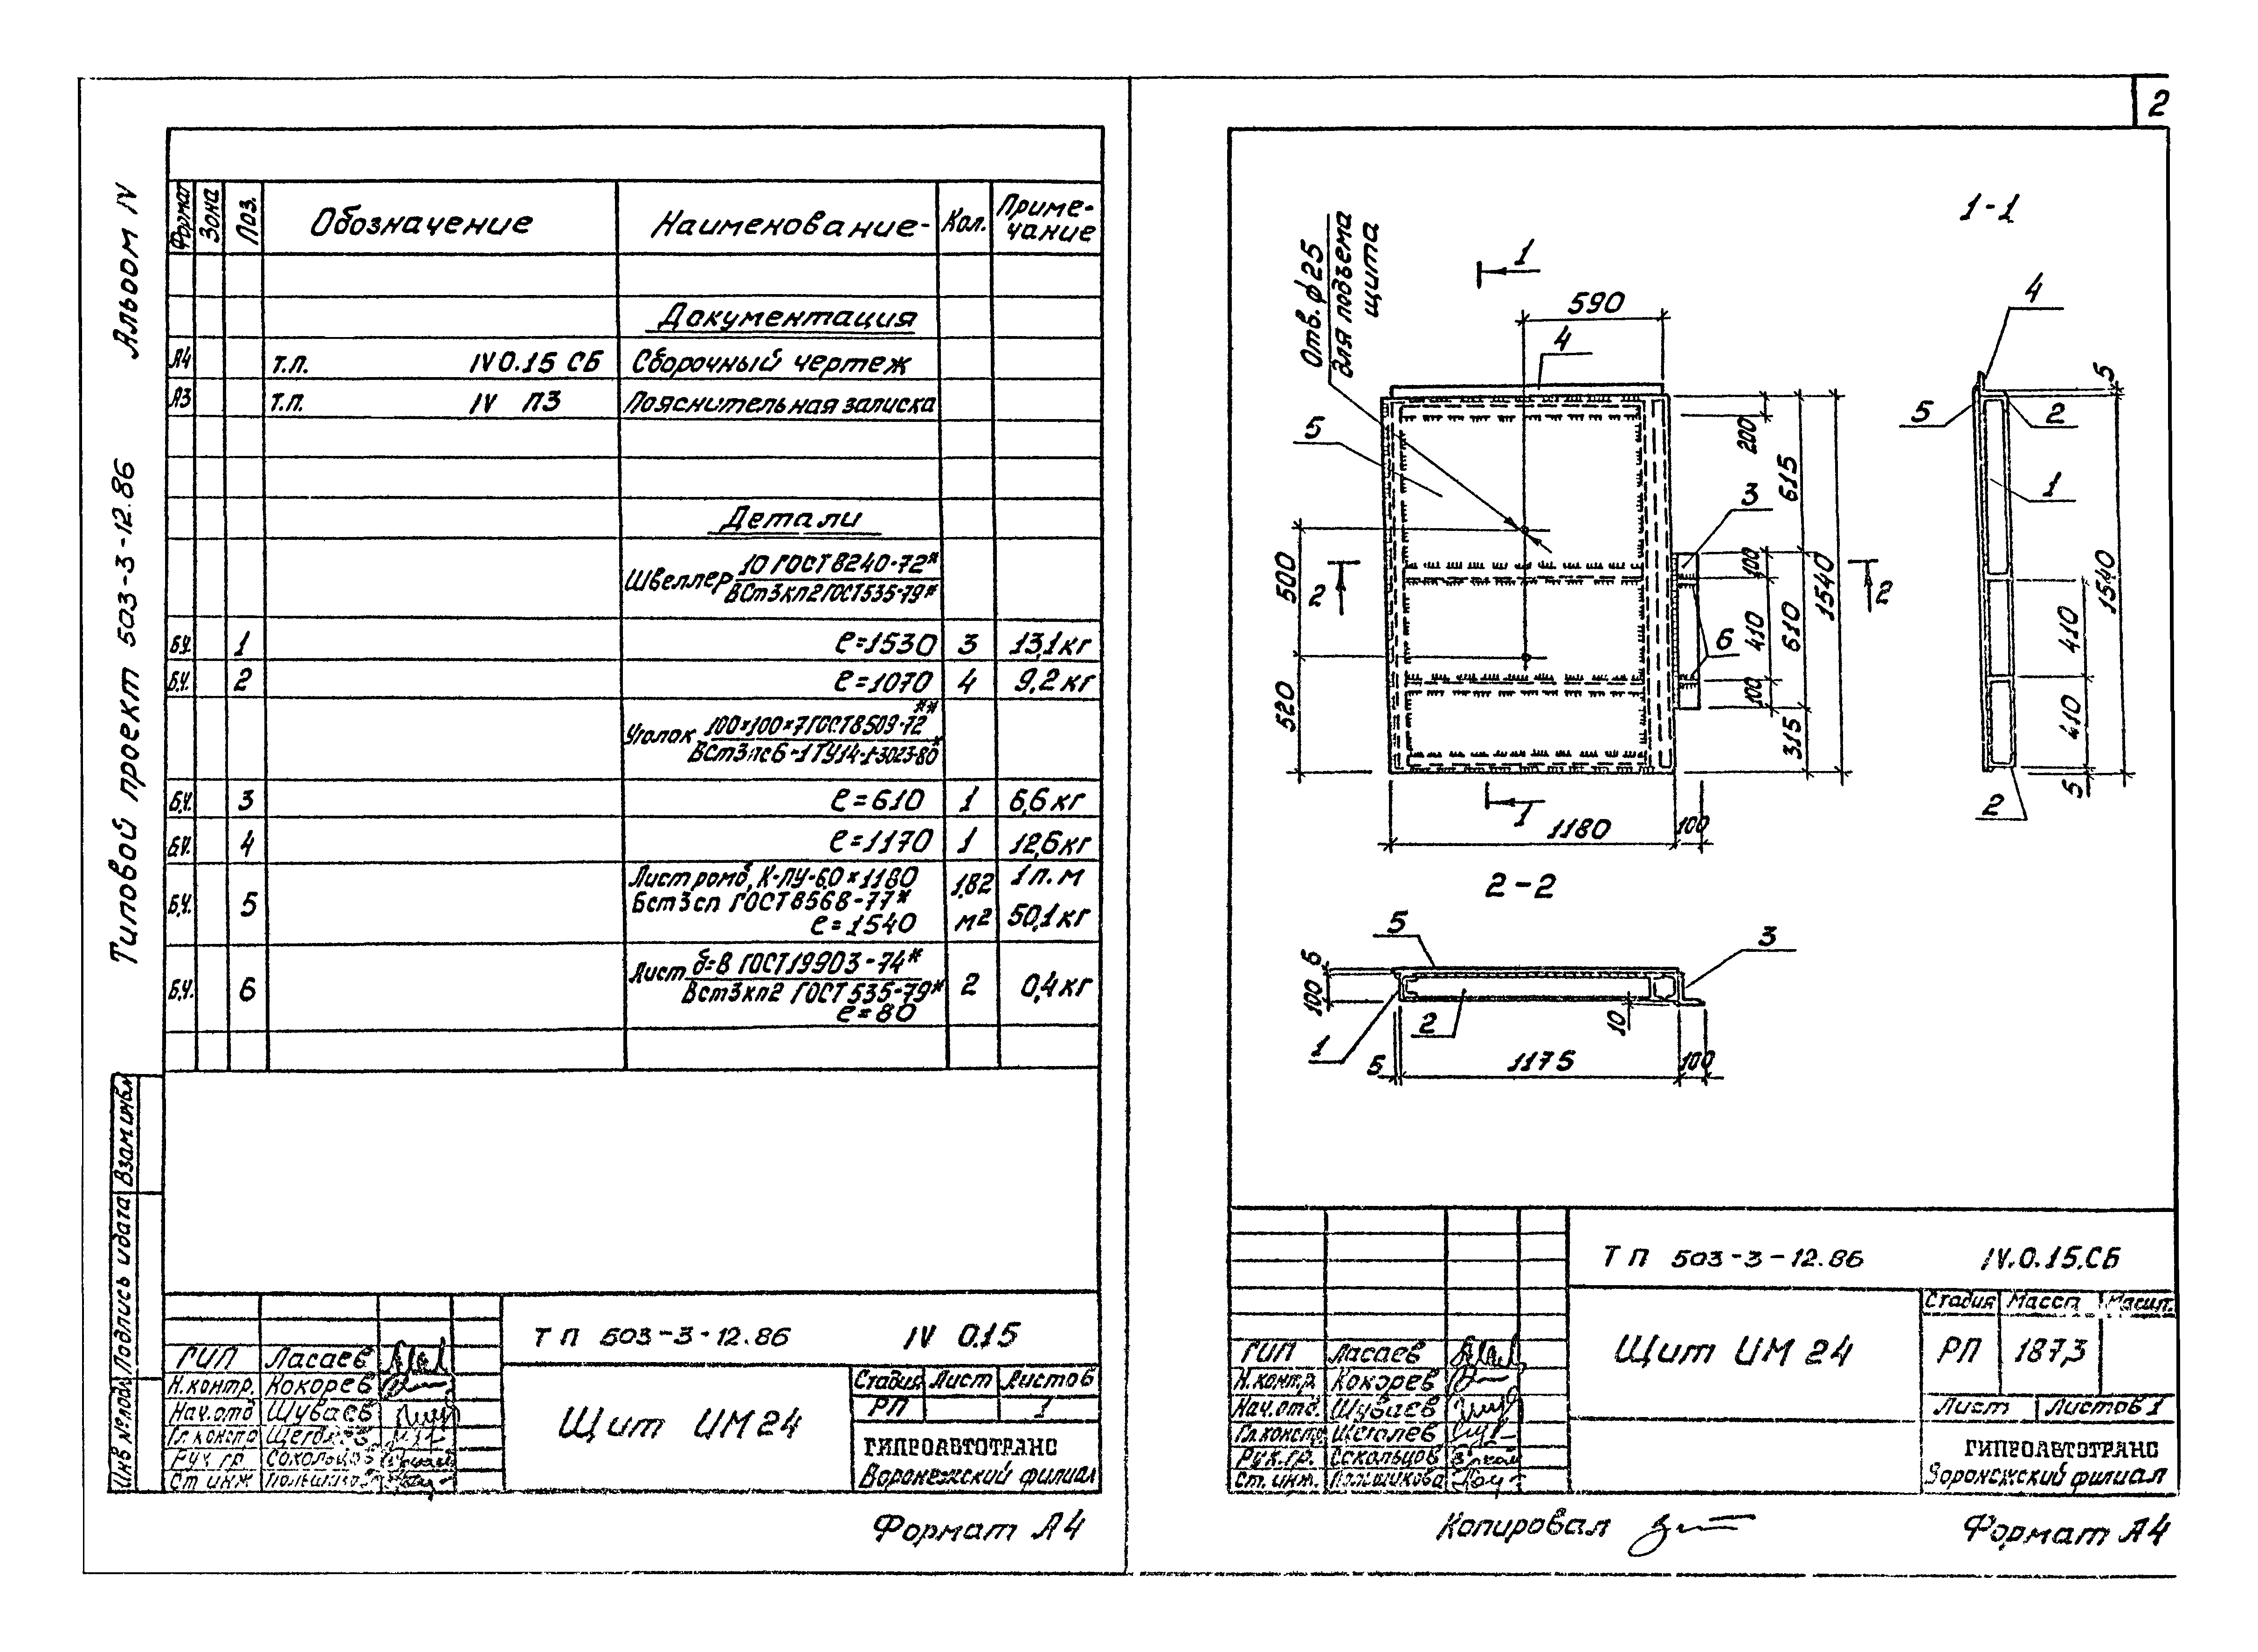 2
Альбом IV
Типовой проект 503-3-12.86
Взам.инв.
Подпись и дата
Инв № подл.
Формат Зона Поз. Обозначение Наименование Кол. Приме-
чание
Документация
А4 т.п. IV 0.15 СБ Сборочный чертеж
А3 т.п. IV ПЗ Пояснительная записка
Детали
Швеллер 10 ГОСТ 8240-72*
ВСт3кп2 ГОСТ 535-79*
Б.Ч. 1 ℓ=1530 3 13,1кг
Б.Ч. 2 ℓ=1070 4 9,2кг
Уголок 100×100×7 ГОСТ 8509-72**
ВСт3пс6-1 ТУ14-1-3023-80*
Б.Ч. 3 ℓ=610 1 6,6кг
Б.Ч. 4 ℓ=1170 1 12,6кг
Б.Ч. 5 Лист ромб, К-ПУ-6,0×1180 1,82 1п.м
Бст3сп ГОСТ 8568-77*
ℓ=1540 м2 50,1кг
Б.Ч. 6 Лист δ=8 ГОСТ 19903-74* 2 0,4кг
Вст3кп2 ГОСТ 535-79*
ℓ=80
ТП 503-3-12.86 IV 0.15
ГИП Ласаев
Н.контр. Кокорев
Нач.отд Шуваев
Гл.констр
Рук.гр. Сокольцов
Ст инж
Щит ИМ 24
Стадия Лист Листов
РП 1
ГИПРОАВТОТРАНС
Воронежский филиал
Формат А4
1-1
Отв. ϕ25
для подъема
щита
1
590
4
5
200
615
3
100
500
2
2
410
610
1540
6
520
100
315
1
1180
100
4
5
5
2
1
1540
410
410
5
2
2-2
5
3
6
100
10
2
1
5
1175
100
ТП 503-3-12.86 IV.0.15.СБ
ГИП Ласаев
Н.контр. Кокорев
Нач.отд. Шуваев
Гл.констр
Рук.гр. Сокольцов
Ст.инж.
Щит ИМ 24
Стадия Масса Масшт.
РП 187,3
Лист Листов 1
ГИПРОАВТОТРАНС
Воронежский филиал
Копировал
Формат А4